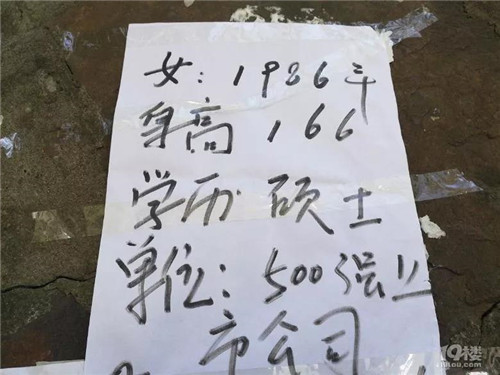 女：1986年
身高 166
学历 硕士
单位：500强上
市公司
19楼